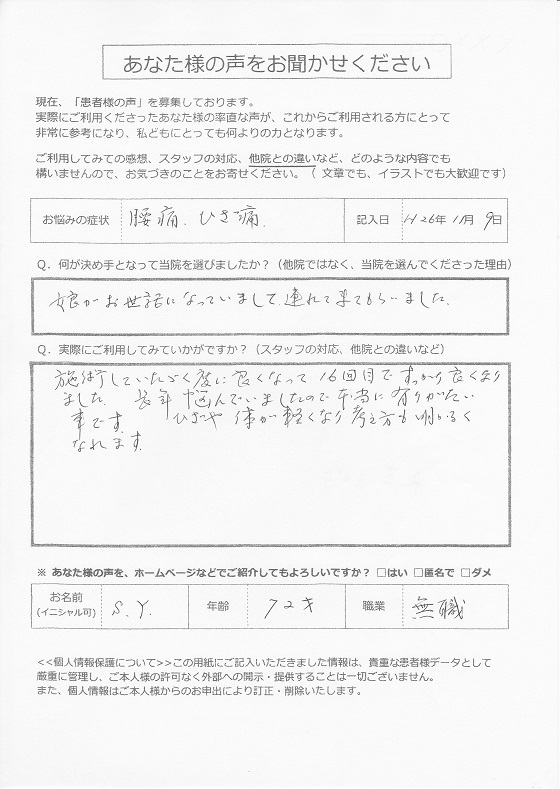 あなた様の声をお聞かせください
現在、「患者様の声」を募集しております。
実際にご利用くださったあなた様の率直な声が、これからご利用される方にとって
非常に参考になり、私どもにとっても何よりの力となります。
ご利用してみての感想、スタッフの対応、他院との違いなど、どのような内容でも
構いませんので、お気づきのことをお寄せください。（ 文章でも、イラストでも大歓迎です）
お悩みの症状 腰痛．ひざ痛． 記入日 H26年 11月 9日
Q．何が決め手となって当院を選びましたか？（他院ではなく、当院を選んでくださった理由）
娘がお世話になっていまして、連れて来てもらいました。
Q．実際にご利用してみていかがですか？（スタッフの対応、他院との違いなど）
施術していただく度に良くなって 16回目ですっかり良くなり
ました。 長年 悩んでいましたので 本当に 有りがたい
事です。 ひざや 体が軽くなり 考え方も 明かるく
なれます。
※ あなた様の声を、ホームページなどでご紹介してもよろしいですか？ □はい □匿名で □ダメ
お名前
(イニシャル可) S. Y. 年齢 72才 職業 無職
<<個人情報保護について>>この用紙にご記入いただきました情報は、貴重な患者様データとして
厳重に管理し、ご本人様の許可なく外部への開示・提供することは一切ございません。
また、個人情報はご本人様からのお申出により訂正・削除いたします。